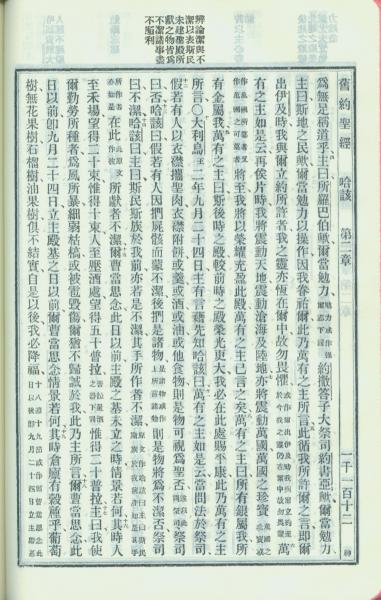 舊約聖經 哈該 第二章 一千一百十二
辨論潔與不
潔以表斯民
未建聖殿所
獻之物皆為
不潔諸事盡
不順利
為無足稱道乎主曰所羅巴伯歟爾當勉力約撒答子大祭司約書亞歟爾當勉力
主曰斯地之民歟爾當勉力以操作因我眷祐爾此乃萬有之主所言此循我所許爾之言即爾
出伊及時我與爾立約所許者我之靈亦恆在爾中故勿畏懼萬
有之主如是云再俟片時我將震動天地震動滄海及陸地亦將震動萬國萬國之珍寶
將至我將以榮耀充盈此殿萬有之主已言之矣萬有之主曰所有銀屬我所
有金屬我萬有之主曰斯後時之殿較前時之殿榮光更大我必在此處賜平康此乃萬有之主
所言○大利烏王二年九月二十四日主有言藉先知哈該曰萬有之主如是云當問法於祭司
假若有人以衣襟攜聖肉衣襟附餅或羹或酒或油或他食物則是物可視為聖否祭司
曰否哈該曰假若有人因捫屍骸而蒙不潔後捫是諸物則是物為不潔否祭司
曰不潔哈該曰主曰斯民斯族於我前亦若是不潔其手所作者不潔
在此所獻者不潔爾曹當思念此日以前主殿之基未立之時情景若何其時人
至禾場望得二十束惟得十束人至壓酒處望得五十普拉惟得二十普拉主曰我使
爾勤勞所種者為風所暴細弱枯槁或被雹毀傷爾猶不歸誠於我此乃主所言爾曹當思念此
日以前即九月二十四日立主殿基之日以前爾曹當思念情景若何其時倉廩有穀種乎葡萄
樹無花果樹石榴樹油果樹俱不結實自是以後我必降福